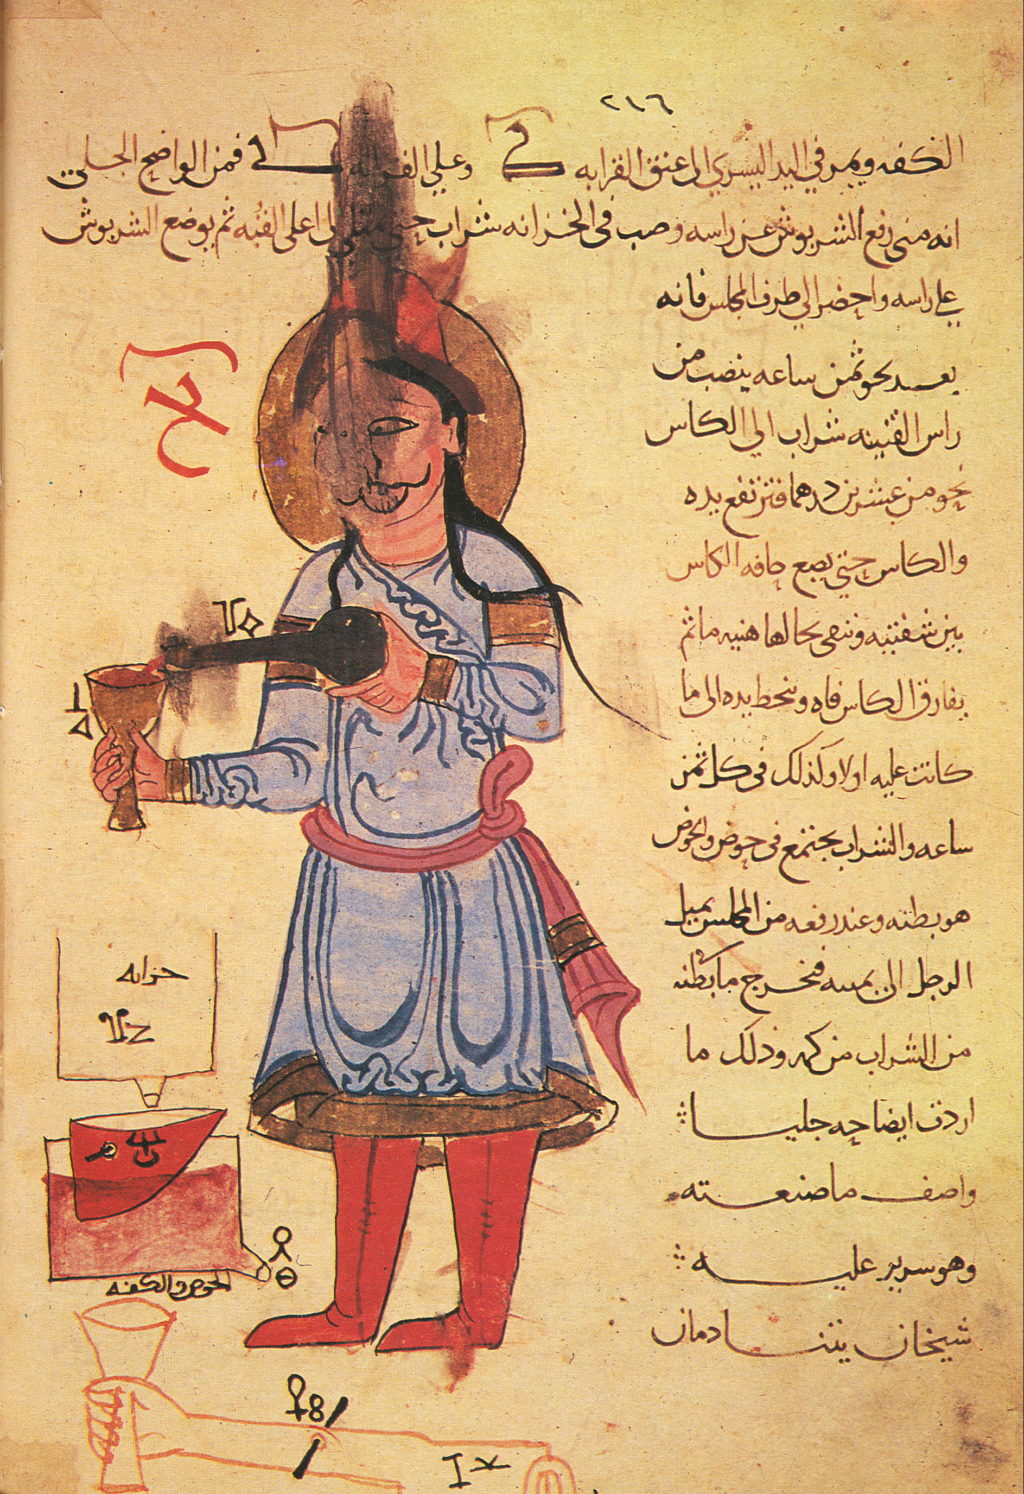 ٢١٦
الكفه ويمر في اليد اليسرى الى عنق القرابه وعلى فمن الواضح الجلي
انه متى رفع الشربوش عن راسه وصب في الخزانه شراب حتى الى اعلى القبه ثم يوضع الشربوش
على راسه واحضر الى طرف المجلس فانه
بعد نحو ثمن ساعه ينصب من
راس القنينه شراب الى الكاس
نحو من عشرين درهما فترتفع يده
والكاس حتى يضع حافه الكاس
بين شفتيه وندعى بحالها هنيه ما ثم
يفارق الكاس فاه وتنحط يده الى ما
كانت عليه اولا وكذلك في كل ثمن
ساعه والشراب يجتمع في حوض والحوض
هو بطنه وعند رفعه من المجلس يميل
الرجل الى يمينه فيخرج ما بطنه
من الشراب من كمه وذلك ما
اردت ايضاحه جليا
واصف ما صنعته
وهو سرير عليه
شيخان يتنادمان
خزانه
الحوض والكفه